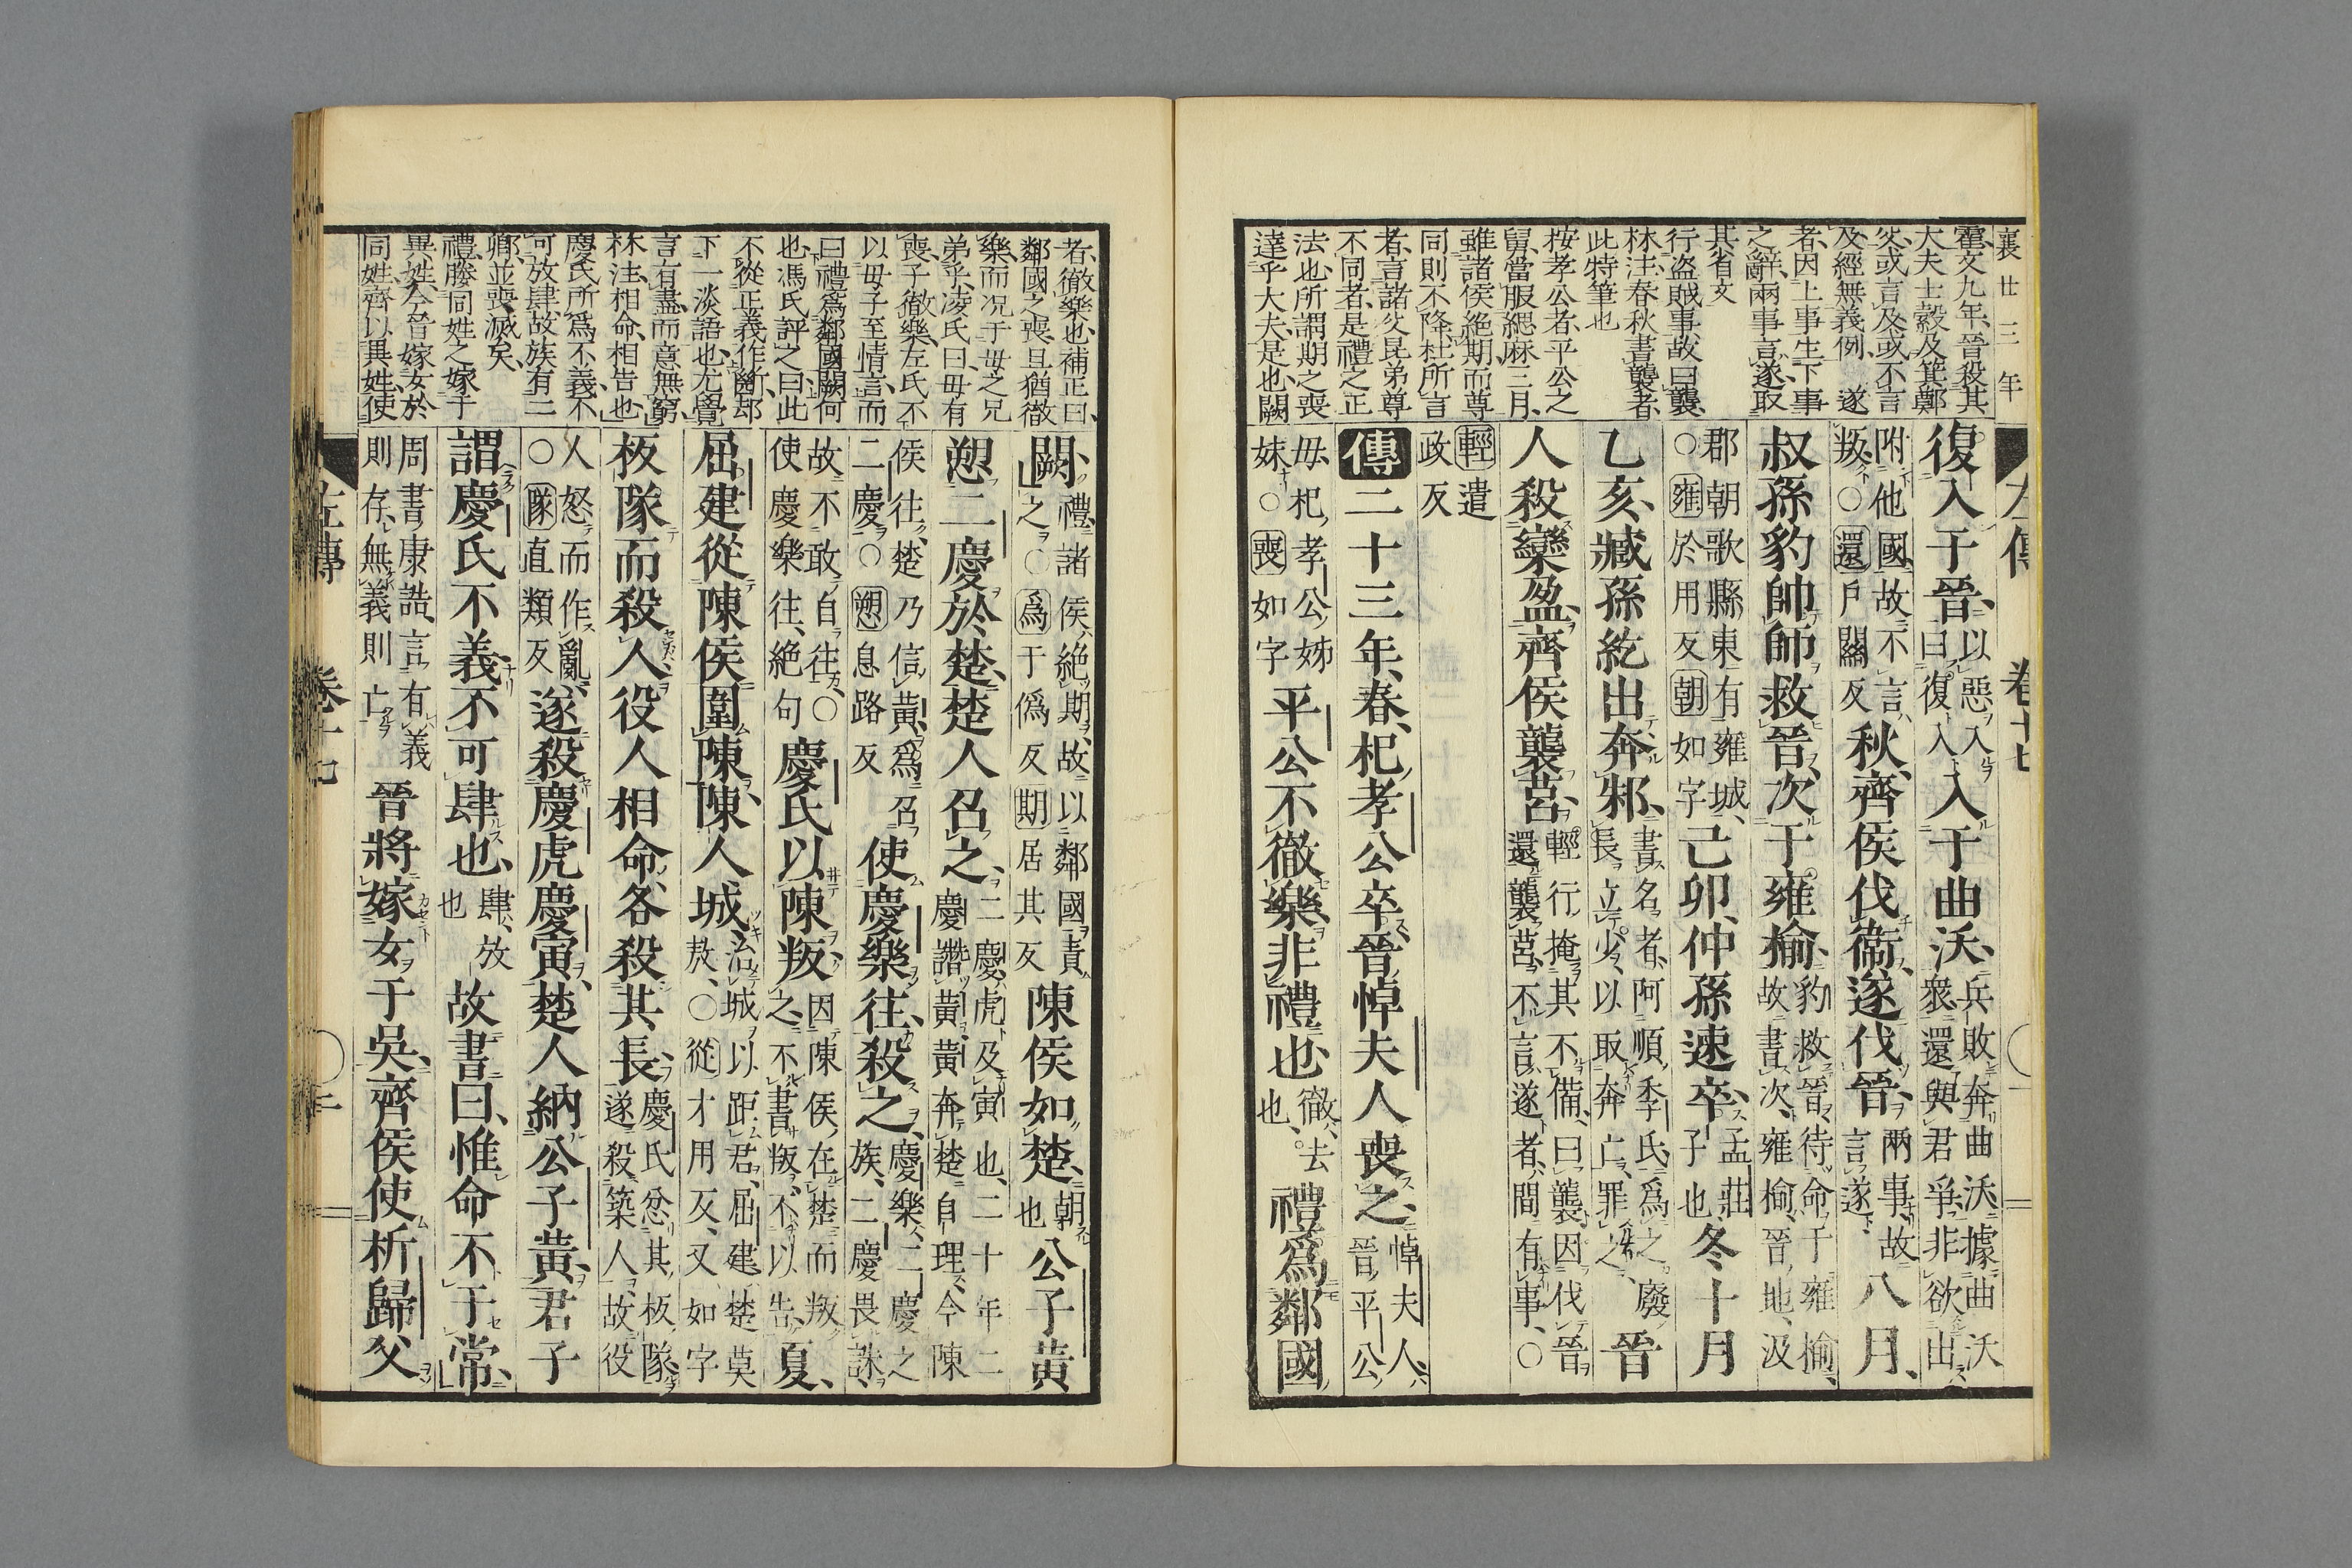 襄廿三年
霍文九年晉殺其
大夫士縠及箕鄭
父或言及或不言
及經無義例　遂
者因上事生下事
之辭兩事言遂取
其省文
行盜賊事故曰襲
林注春秋書襲者
此特筆也
按孝公者平公之
舅當服緦麻三月
雖諸侯絶期而尊
同則不降杜所言
者言諸父昆弟尊
不同者是禮之正
法也所謂期之喪
達乎大夫是也闕
左傳　卷十七
復入于晉以惡入曰復入入于曲沃兵敗奔曲沃據曲沃衆還與君爭非欲出
附他國故不言叛○還戶關反秋齊侯伐衞遂伐晉兩事故言遂八月
叔孫豹帥師救晉次于雍榆豹救晉待命于雍榆故書次雍榆晉地汲
郡朝歌縣東有雍城○雍於用反朝如字己卯仲孫速卒孟莊子也冬十月
乙亥臧孫紇出奔邾書名者阿順季氏爲之廢長立少以取奔亡罪之晉
人殺欒盈齊侯襲莒輕行掩其不備曰襲因伐晉還襲莒不言遂者間有事○
輕遣政反
傳二十三年春杞孝公卒晉悼夫人喪之悼夫人晉平公
母杞孝公姊妹○喪如字平公不徹樂非禮也徹去也禮爲鄰國
者徹樂也補正曰
鄰國之喪且猶徹
樂而況于母之兄
弟乎凌氏曰母有
喪子徹樂左氏不
以母子至情言而
曰禮爲鄰國闕何
也馮氏評之曰此
不從正義作斷却
下一淡語也尤覺
言有盡而意無窮
林注相命相告也
慶氏所爲不義不
可放肆故族有二
卿並喪滅矣
禮滕同姓之嫁于
異姓今晉嫁女於
同姓齊以異姓使
闕禮諸侯絶期故以鄰國責之○爲于僞反期居其反陳侯如楚朝也公子黃
愬二慶於楚楚人召之二慶虎及寅也二十年二慶譖黃黃奔楚自理今陳
侯往楚乃信黃爲召二慶○愬息路反使慶樂往殺之慶樂二慶之族二慶畏誅
故不敢自往○使慶樂往絶句慶氏以陳叛因陳侯在楚而叛之不書叛不以告夏
屈建從陳侯圍陳陳人城治城以距君屈建楚莫敖○從才用反又如字
板隊而殺人役人相命各殺其長慶氏忿其板隊遂殺築人故役
人怒而作亂○隊直類反遂殺慶虎慶寅楚人納公子黃君子
謂慶氏不義不可肆也肆放也故書曰惟命不于常
周書康誥言有義則存無義則亡晉將嫁女于吳齊侯使析歸父
左傳　卷十七　二